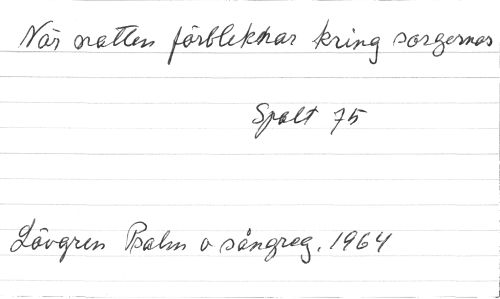 När natten förbleknar kring sorgernas
Spalt 75
Lövgren Psalm o sångreg. 1964